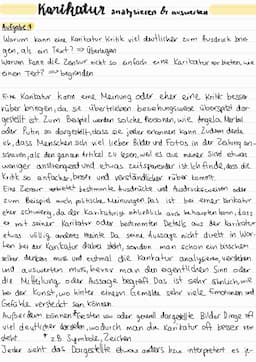 Karikatur analysieren & auswerten
Aufgabe 1
Warum kann eine Karikatur Kritik viel deutlicher zum Ausdruck brin-
gen, als ein Text? ⇒ überlegen
Warum kann die Zensur nicht so einfach eine Karikatur verbieten, wie
einen Text? ⇒ begründen
Eine Karikatur kann eine Meinung oder eher eine Kritik besser
rüber bringen, da sie übertrieben beziehungsweise überspitzt dar-
gestellt ist. Zum Beispiel werden solche Personen, wie Angela Merkel
oder Putin so dargestellt, dass sie jeder erkennen kann. Zudem denke
ich, dass Menschen sich viel lieber Bilder und Fotos in der Zeitung an-
schauen, als den ganzen Artikel zu lesen, weil es aus meiner Sicht etwas
weniger anstrengend und etwas zeitsparender ist. Ich finde, dass die
Kritik so einfacher, besser und verständlicher rüber kommt.
Eine Zensur verbietet bestimmte Ausdrücke und Ausdrucksweisen oder
zum Beispiel auch politische Meinungen. Das ist bei einer Karikatur
eher schwierig, da der Karikaturist schließlich auch behaupten kann, dass
er mit seiner Karikatur oder bestimmten Details aus der Karikatur
etwas völlig anderes meinte. Da seine Aussage nicht direkt in Wor-
ten bei der Karikatur dabei steht, sondern man schon ein bisschen
selber denken muss und erstmal die Karikatur analysieren, verstehen
und auswerten muss, bevor man den eigentlichen Sinn oder
die Mitteilung oder Aussage begreift. Das ist sehr ähnlich, wie
bei der Kunst, wo hinter einem Gemälde sehr viele Emotionen und
Gefühle versteckt sein können.
Außerdem können Gesten von oder generell dargestellte Bilder Dinge oft
viel deutlicher darstellen, wodurch man die Karikatur oft besser ver-
steht. * z.B. Symbole, Zeichen
Jeder sieht das Dargestellte etwas anders bzw. interpretiert es je-